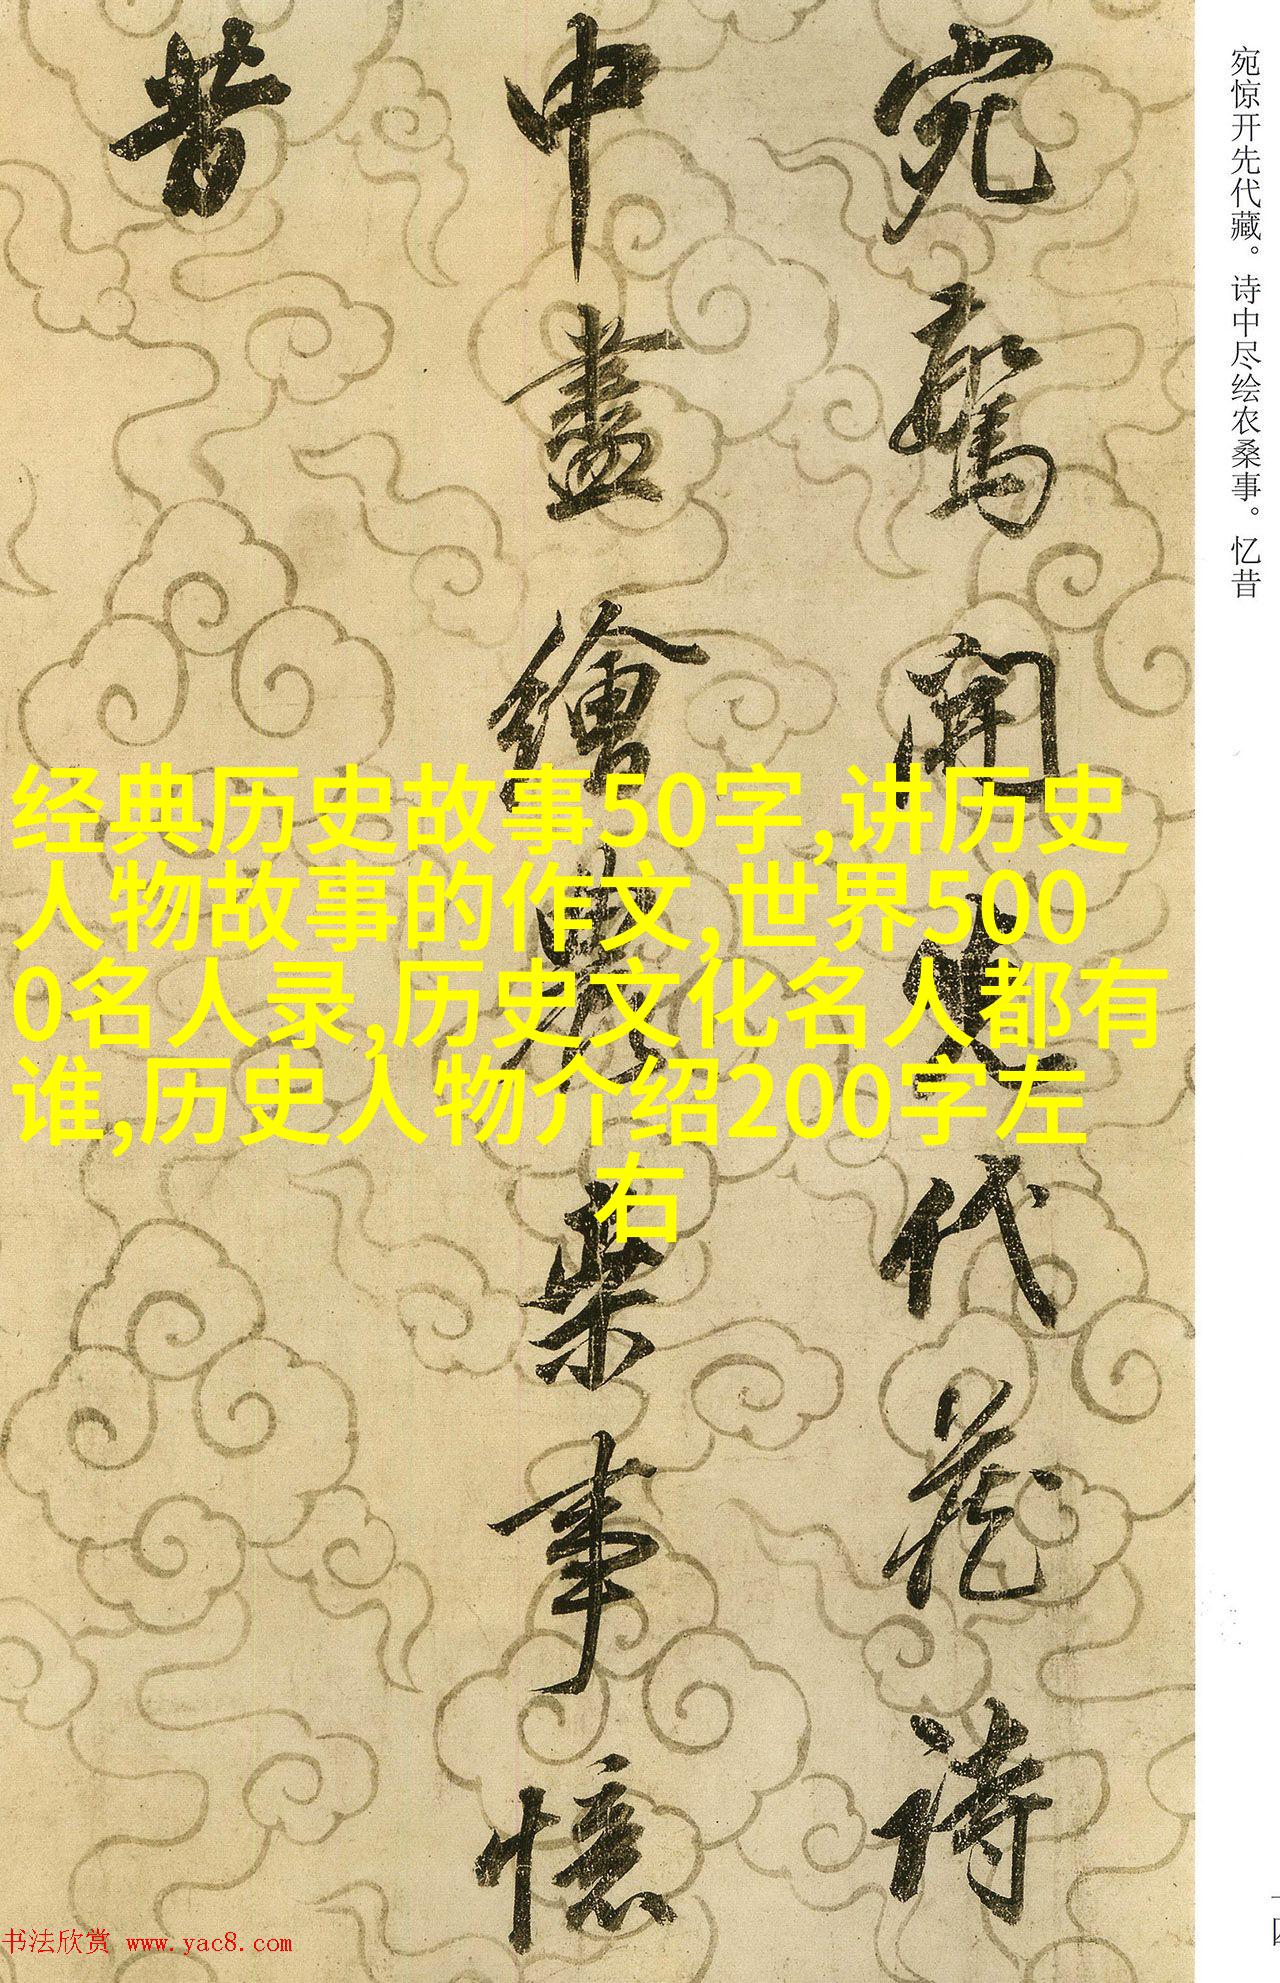 宛惊开先代藏。诗中尽绘农桑事。忆昔
宛驚開先代藏詩
中盡繪農桑事憶
昔
经典历史故事50字,讲历史
人物故事的作文,世界500
0名人录,历史文化名人都有
谁,历史人物介绍200字左
右
书法欣赏 www.yac8.com